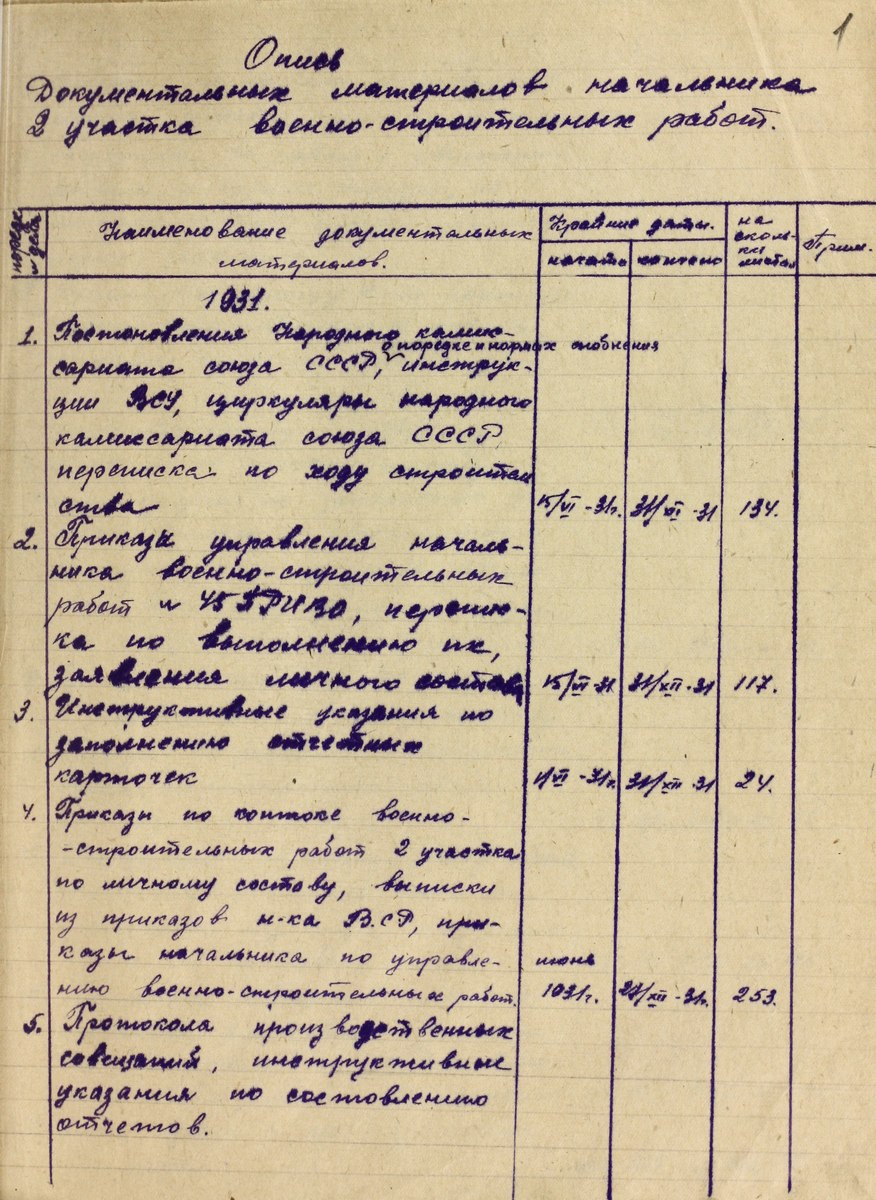 1
Опись
Документальных материалов начальника
2 участка военно-строительных работ.
порядк
№ дела
Наименование документальных
материалов.
Крайние даты.
начато
кончено
на
сколь-
ких
листах
Прим.
1931.
1. Постановления Народного камис-
о порядке и нормах снабжения
сариата союза СССР, инструк-
ции ВСУ, циркуляры народного
камиссариата союза СССР,
переписка по ходу строитель
ства 15/VI-31г. 31/XII-31 134.
2. Приказы управления началь-
ника военно-строительных
работ № 45 ПРИВО, перепис-
ка по выполнению их,
заявления личного состава 15/VI-31 31/XII-31 117.
3. Инструктивные указания по
заполнению отчетных
карточек 1/VI-31г. 31/XII-31 24.
4. Приказы по контоке военно-
-строительных работ 2 участка
по личному составу, выписки
из приказов н-ка В.СР, при-
казы начальника по управле- июнь
нию военно-строительных работ. 1931г. 27/XII-31г. 253.
5. Протокола производственных
совещаний, инструктивные
указания по составлению
отчетов.